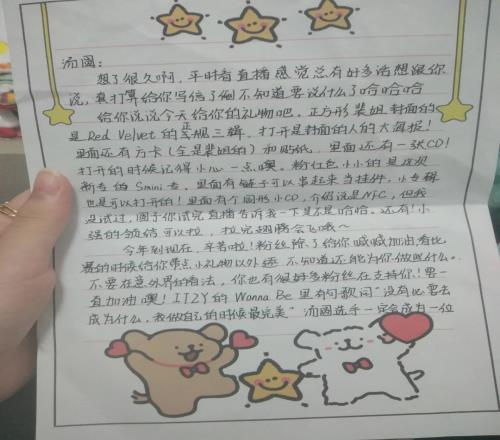 汤圆：
想了很久啊，平时看直播感觉总有好多话想跟你
说，真打算给你写信了倒不知道要说什么了哈哈哈
给你说说今天给你的礼物吧，正方形裴姐封面的
是Red Velvet的正规三辑，打开是封面的人的大海报！
里面还有方卡（全是裴姐的）和贴纸，里面还有一张CD！
打开的时候记得小心一点噢。粉红色小小的是这次
新专的Smini专，里面有链子可以串起来当挂件，小专辑
也是可以打开的！里面有个圆形小CD，介绍说是NFC，但我
没试过，圆子你试完直播告诉我一下是不是哈哈。还有！小
强的领结可以拉，拉完翅膀会飞哦～
今年到现在，辛苦啦！粉丝除了给你喊喊加油，看比
赛的时候给你带点小礼物以外，还不知道还能为你做些什么。
不要在意外界的看法，你也有很好多粉丝在支持你！要一
直加油噢！ITZY的Wanna Be里有句歌词“没有必要去
成为什么，我做自己的时候最完美”汤圆选手一定会成为一位